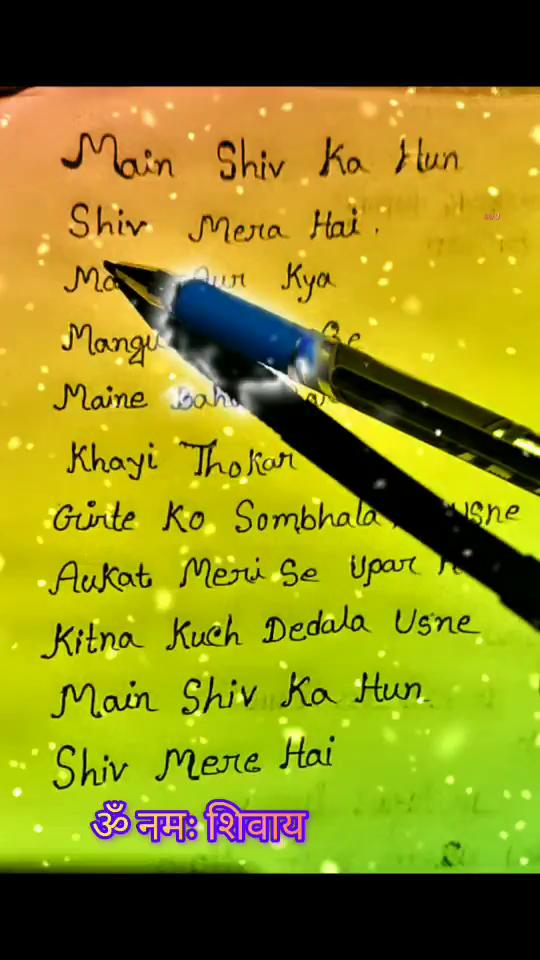 Main Shiv Ka Hun
Shiv Mera Hai.
Kya
Maine
Khayi Thokar
Girte Ko Sombhala Usne
Aukat Meri Se Upar
Kitna Kuch Dedala Usne
Main Shiv Ka Hun
Shiv Mere Hai
ॐ नमः शिवाय